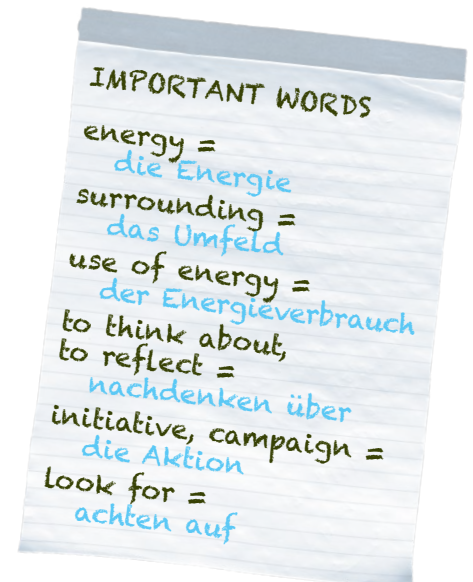 IMPORTANT WORDS
energy =
die Energie
surrounding =
das Umfeld
use of energy =
der Energieverbrauch
to think about,
to reflect =
nachdenken über
initiative, campaign =
die Aktion
look for =
achten auf